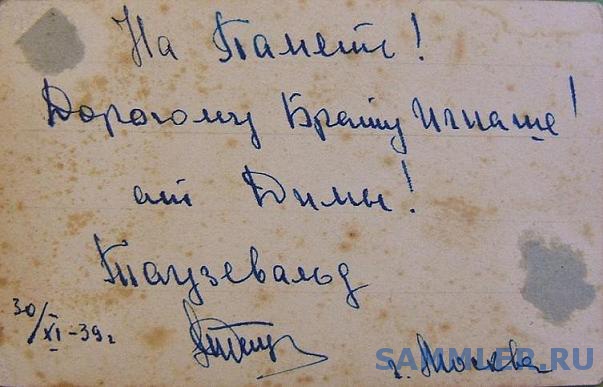 На Память!
Дорогому Брату Игнаше!
от Димы!
Таузевальд
30/XI-39г
г. Москва
SAMMLER.RU